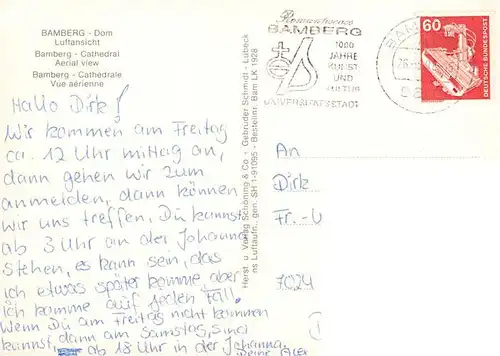 BAMBERG - Dom
Luftansicht
Bamberg - Cathedral
Aerial view
Bamberg - Cathédrale
Vue aérienne
Hallo Dirk!
Wir kommen am Freitag
ca. 12 Uhr mittag an,
dann gehen wir zum
anmelden, dann können
wir uns treffen. Du kannst
ab 3 Uhr an der Johanna
stehen, es kann sein, das
ich etwas später komme, aber
ich komme auf jeden Fall.
Wenn Du am Freitag nicht kommen
kannst, dann am Samstag, sind
ab 18 Uhr in der Johanna.
Herst. u. Verlag Schöning & Co - Gebrüder Schmidt - Lübeck
ns Luftaufn., gen. SH 1-91095 - Bestellnr. Bam LK 1928
BAMBERG
1000
JAHRE
KUNST
UND
KULTUR
UNIVERSITÄTSSTADT
60
DEUTSCHE BUNDESPOST
An
Dirk
Fr.-U
7024